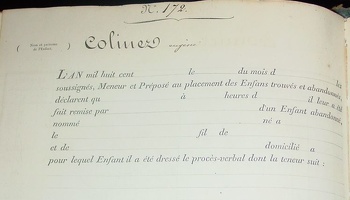 N.° 172.
( Nom et prénoms de l'Enfant. ) Colinez
L'AN mil huit cent le du mois d
soussignés, Meneur et Préposé au placement des Enfans trouvés et abandonnés,
déclarent qu à heures d il leur a été
fait remise par d'un Enfant abandonné,
nommé né a
le fil de
et de domicilié a
pour lequel Enfant il a été dressé le procès-verbal dont la teneur suit :